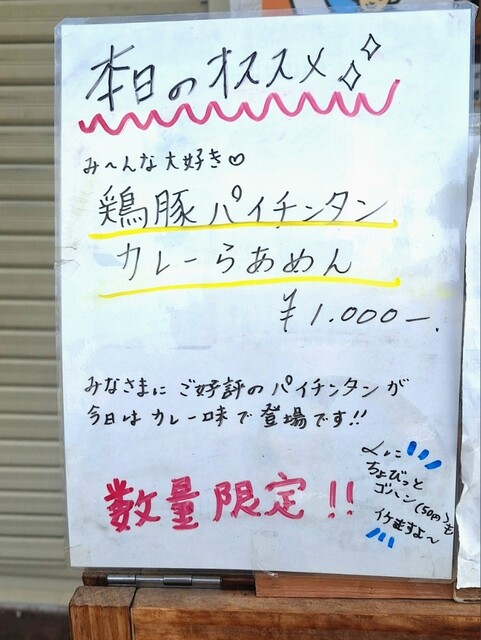 本日のオススメ
み〜んな大好き♡
鶏豚パイチンタン
カレーらあめん
¥1.000ー.
みなさまに ご好評の パイチンタンが
今日は カレー味で 登場です!!
数量限定!!
〆に
ちょびっと
ゴハン(50円)も
イケますよ〜